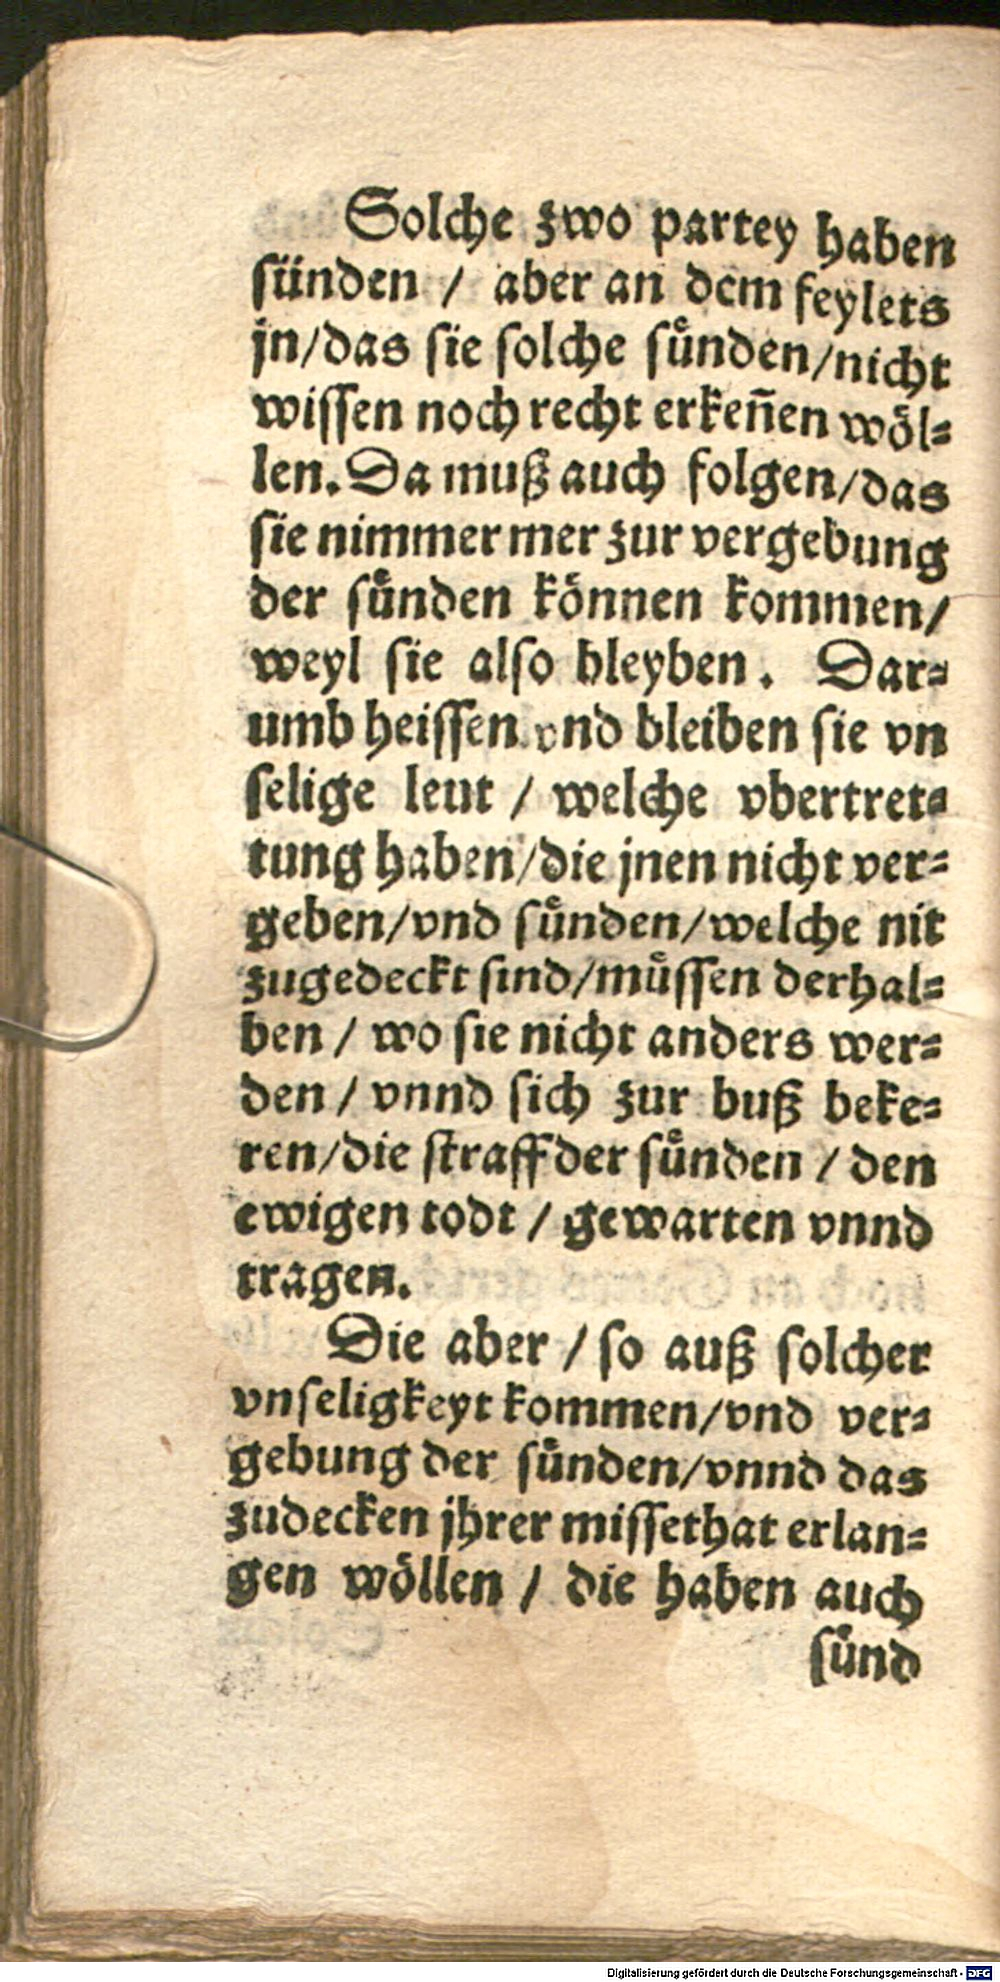 Solche zwo partey haben
sünden / aber an dem feylets
jn/das sie solche sünden/nicht
wissen noch recht erkeñen wöl⸗
len. Da muß auch folgen/das
sie nimmer mer zur vergebung
der sünden können kommen/
weyl sie also bleyben. Dar⸗
umb heissen vnd bleiben sie vn
selige leut / welche vbertret⸗
tung haben/die jnen nicht ver⸗
geben/vnd sünden/welche nit
zugedeckt sind/müssen derhal⸗
ben / wo sie nicht anders wer⸗
den / vnnd sich zur buß beke⸗
ren/die straff der sünden / den
ewigen todt / gewarten vnnd
tragen.
Die aber / so auß solcher
vnseligkeyt kommen/vnd ver⸗
gebung der sünden/vnnd das
zudecken jhrer missethat erlan⸗
gen wöllen / die haben auch
sünd
Digitalisierung gefördert durch die Deutsche Forschungsgemeinschaft - DFG